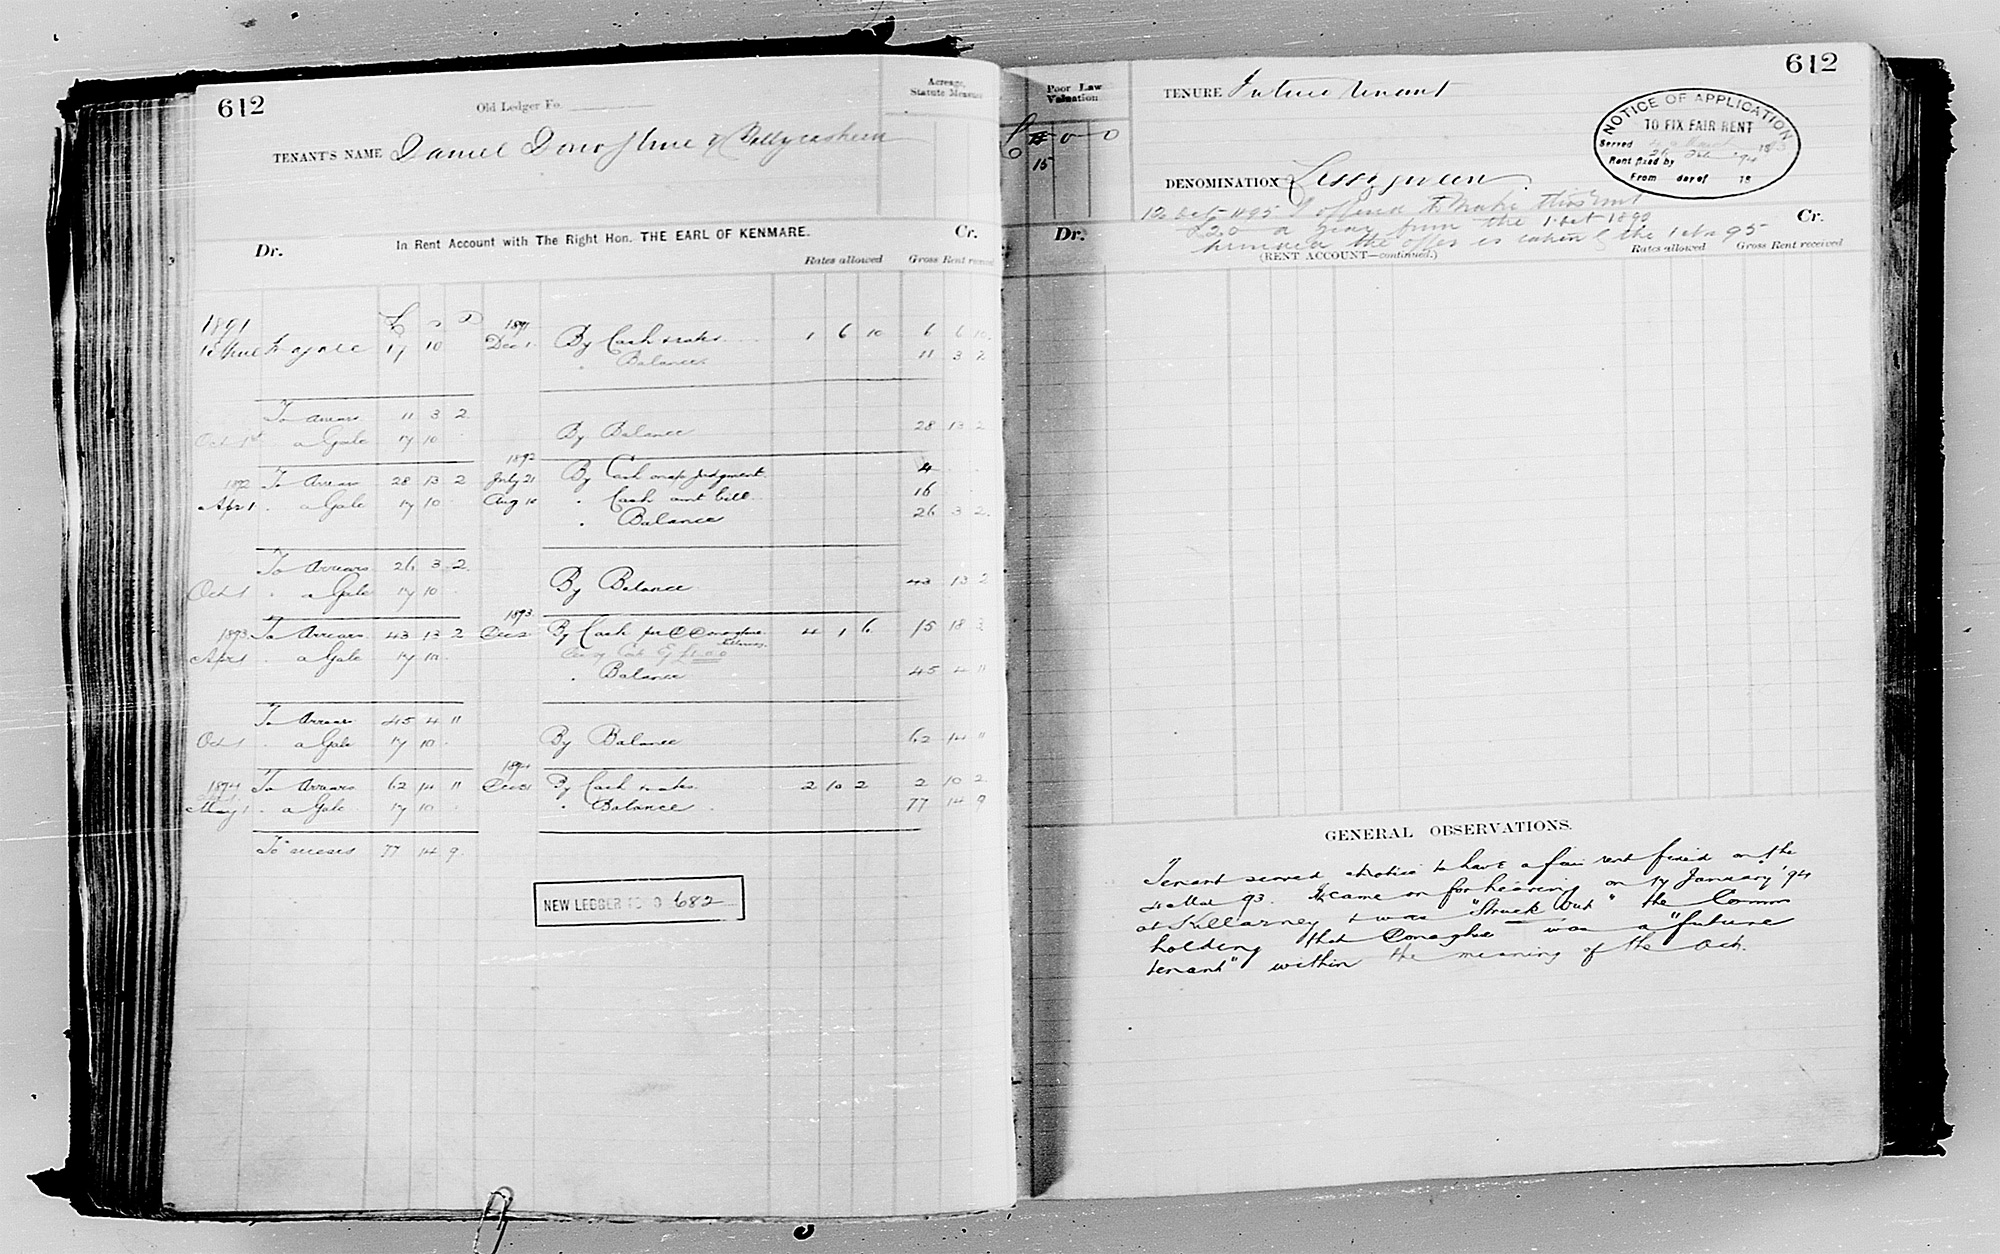 612
Old Ledger Fo.
Acreage, Statute Measure
TENANT'S NAME Daniel Donoghue of Ballycasheen
In Rent Account with The Right Hon. THE EARL OF KENMARE.
Dr. Cr.
Rates allowed Gross Rent received
1891 £ s D 1891
To a gale 17 10 Dec 1 By Cash & rates 1 6 10 6 6 10
" Balance 11 3 2
To Arrears 11 3 2
Oct 1st a Gale 17 10 By Balance 28 13 2
1892
1892 To Arrears 28 13 2 July 21 By Cash on a/c Judgment 4
Apr 1 " a Gale 17 10 Aug 10 " Cash amt bill 16
" Balance 26 3 2
To Arrears 26 3 2
Oct 1 " a Gale 17 10 By Balance 43 13 2
1893
1893 To Arrears 43 13 2 Dec 2 By Cash per D Donoghue 4 1 6 15 18 3
Apr 1 " a Gale 17 10
" Balance 45 4 11
To Arrears 45 4 11
Oct 1 " a Gale 17 10 By Balance 62 14 11
1894
1894 To Arrears 62 14 11 Dec 21 By Cash rates 2 10 2 2 10 2
May 1 " a Gale 17 10 " Balance 77 14 9
To arrears 77 14 9
NEW LEDGER FOLIO 682
612
Poor Law Valuation
£ 0 0
15
TENURE Future tenant
NOTICE OF APPLICATION
TO FIX FAIR RENT
Served March 1893
Rent fixed by 94
From day of 18
DENOMINATION Lissyviggeen
12 Oct 1895 I offered to make this rent
£20 a year from the 1 Oct 1890
provided the offer is taken by the 1 95
Dr. Cr.
(RENT ACCOUNT—continued.)
Rates allowed Gross Rent received
GENERAL OBSERVATIONS.
Tenant served notice to have a fair rent fixed on the
93. It came on for hearing on 17 January '94
at Killarney & was "Struck Out" the Comms
holding that Donoghue was a "future
tenant" within the meaning of the Act.